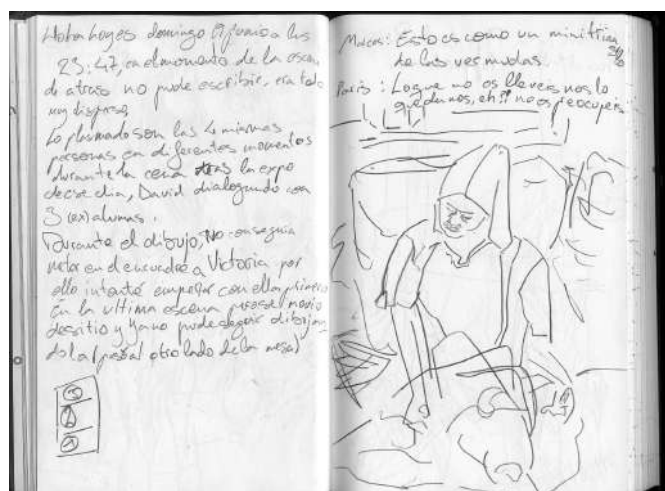 Ahora hoy es domingo 19 junio a las
23:47, en el momento de la escena
de atras no pude escribir, era todo
muy disperso,
Lo plasmado son las 4 mismas
personas en diferentes momentos
durante la cena tras la expo
de ese dia, David dialogando con
3 (ex)alumnas.
Durante el dibujo, No conseguia
meter en el encuadre a Victoria por
ello intenté empezar con ella primero
En la ultima escena se movio
de sitio y ya no pude seguir dibujan
dola (pasó al otro lado de la mesa)
3
2
1
Marcos: Esto es como un mini
te las ves mudas
Paris: Lo que no os lleveis nos lo
quedamos, eh!! no os preocupeis